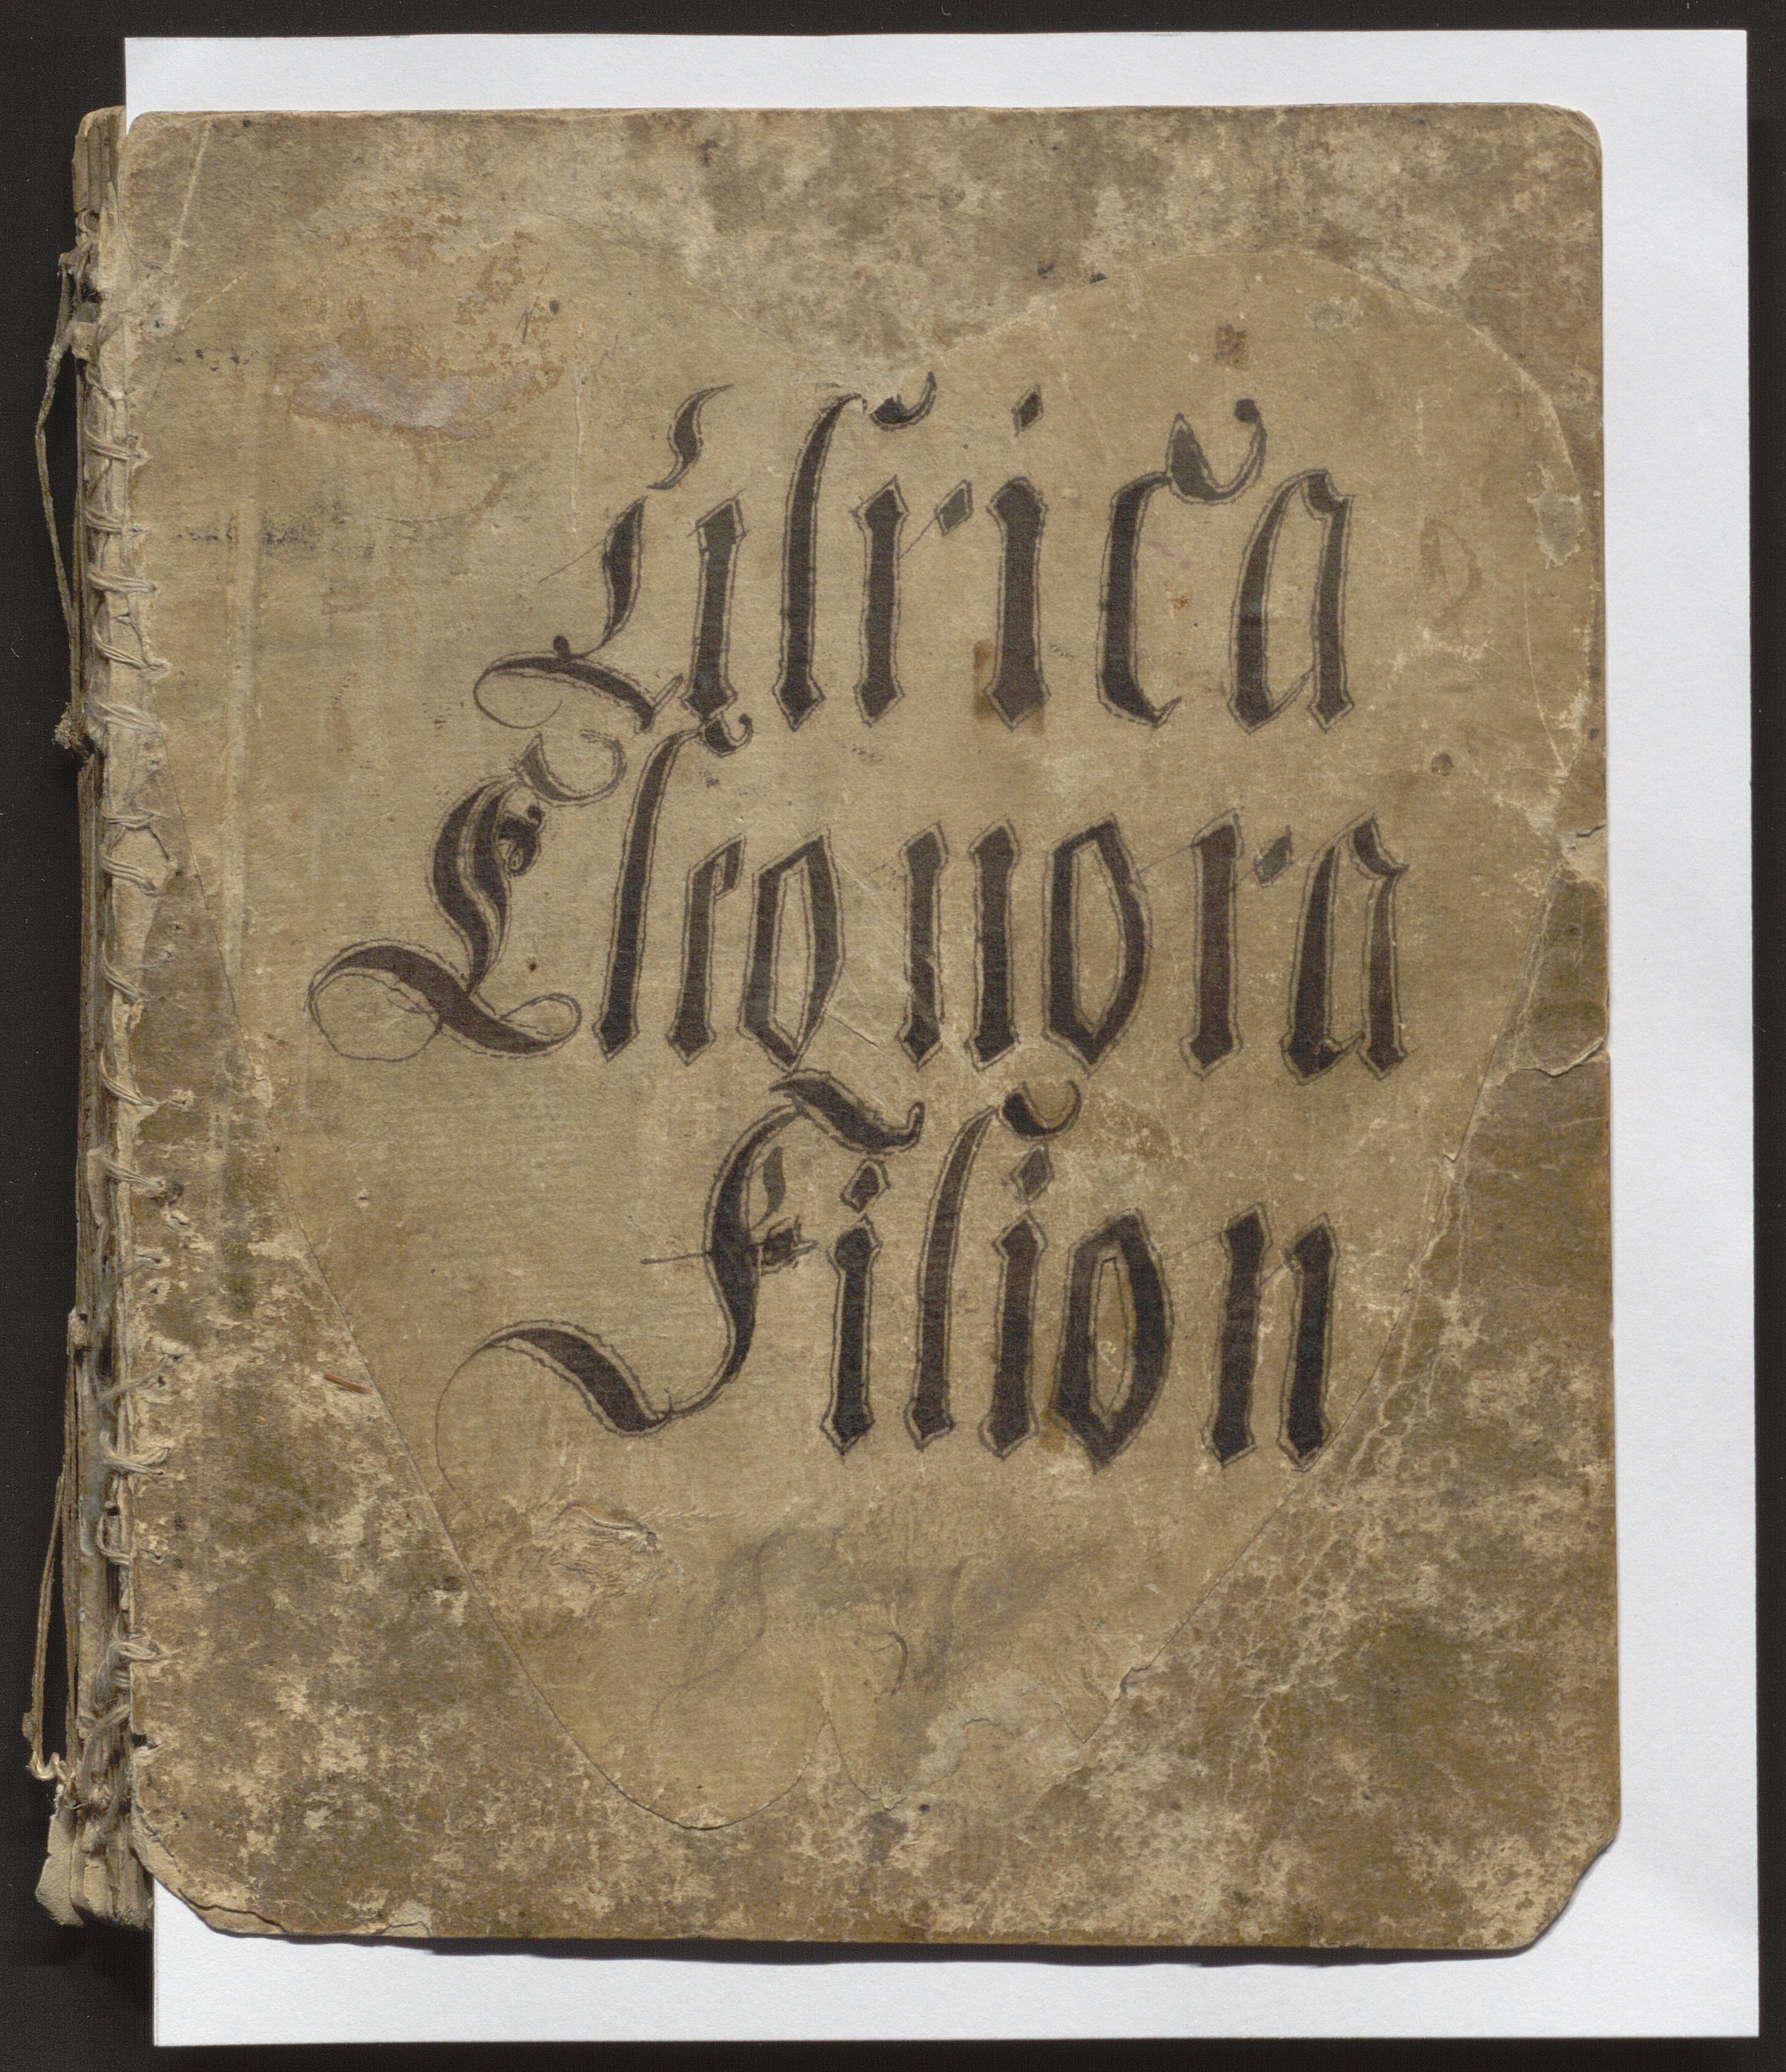 Ulrica
Eleonora
Filion